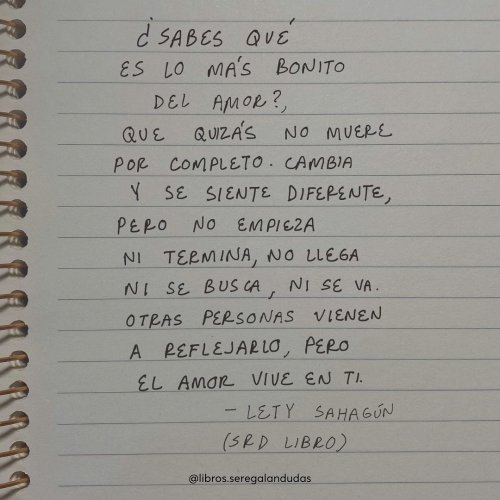 ¿SABES QUÉ
ES LO MÁS BONITO
DEL AMOR?,
QUE QUIZÁS NO MUERE
POR COMPLETO. CAMBIA
Y SE SIENTE DIFERENTE,
PERO NO EMPIEZA
NI TERMINA, NO LLEGA
NI SE BUSCA, NI SE VA.
OTRAS PERSONAS VIENEN
A REFLEJARLO, PERO
EL AMOR VIVE EN TI.
- LETY SAHAGÚN
(SRD LIBRO)
@libros.seregalandudas